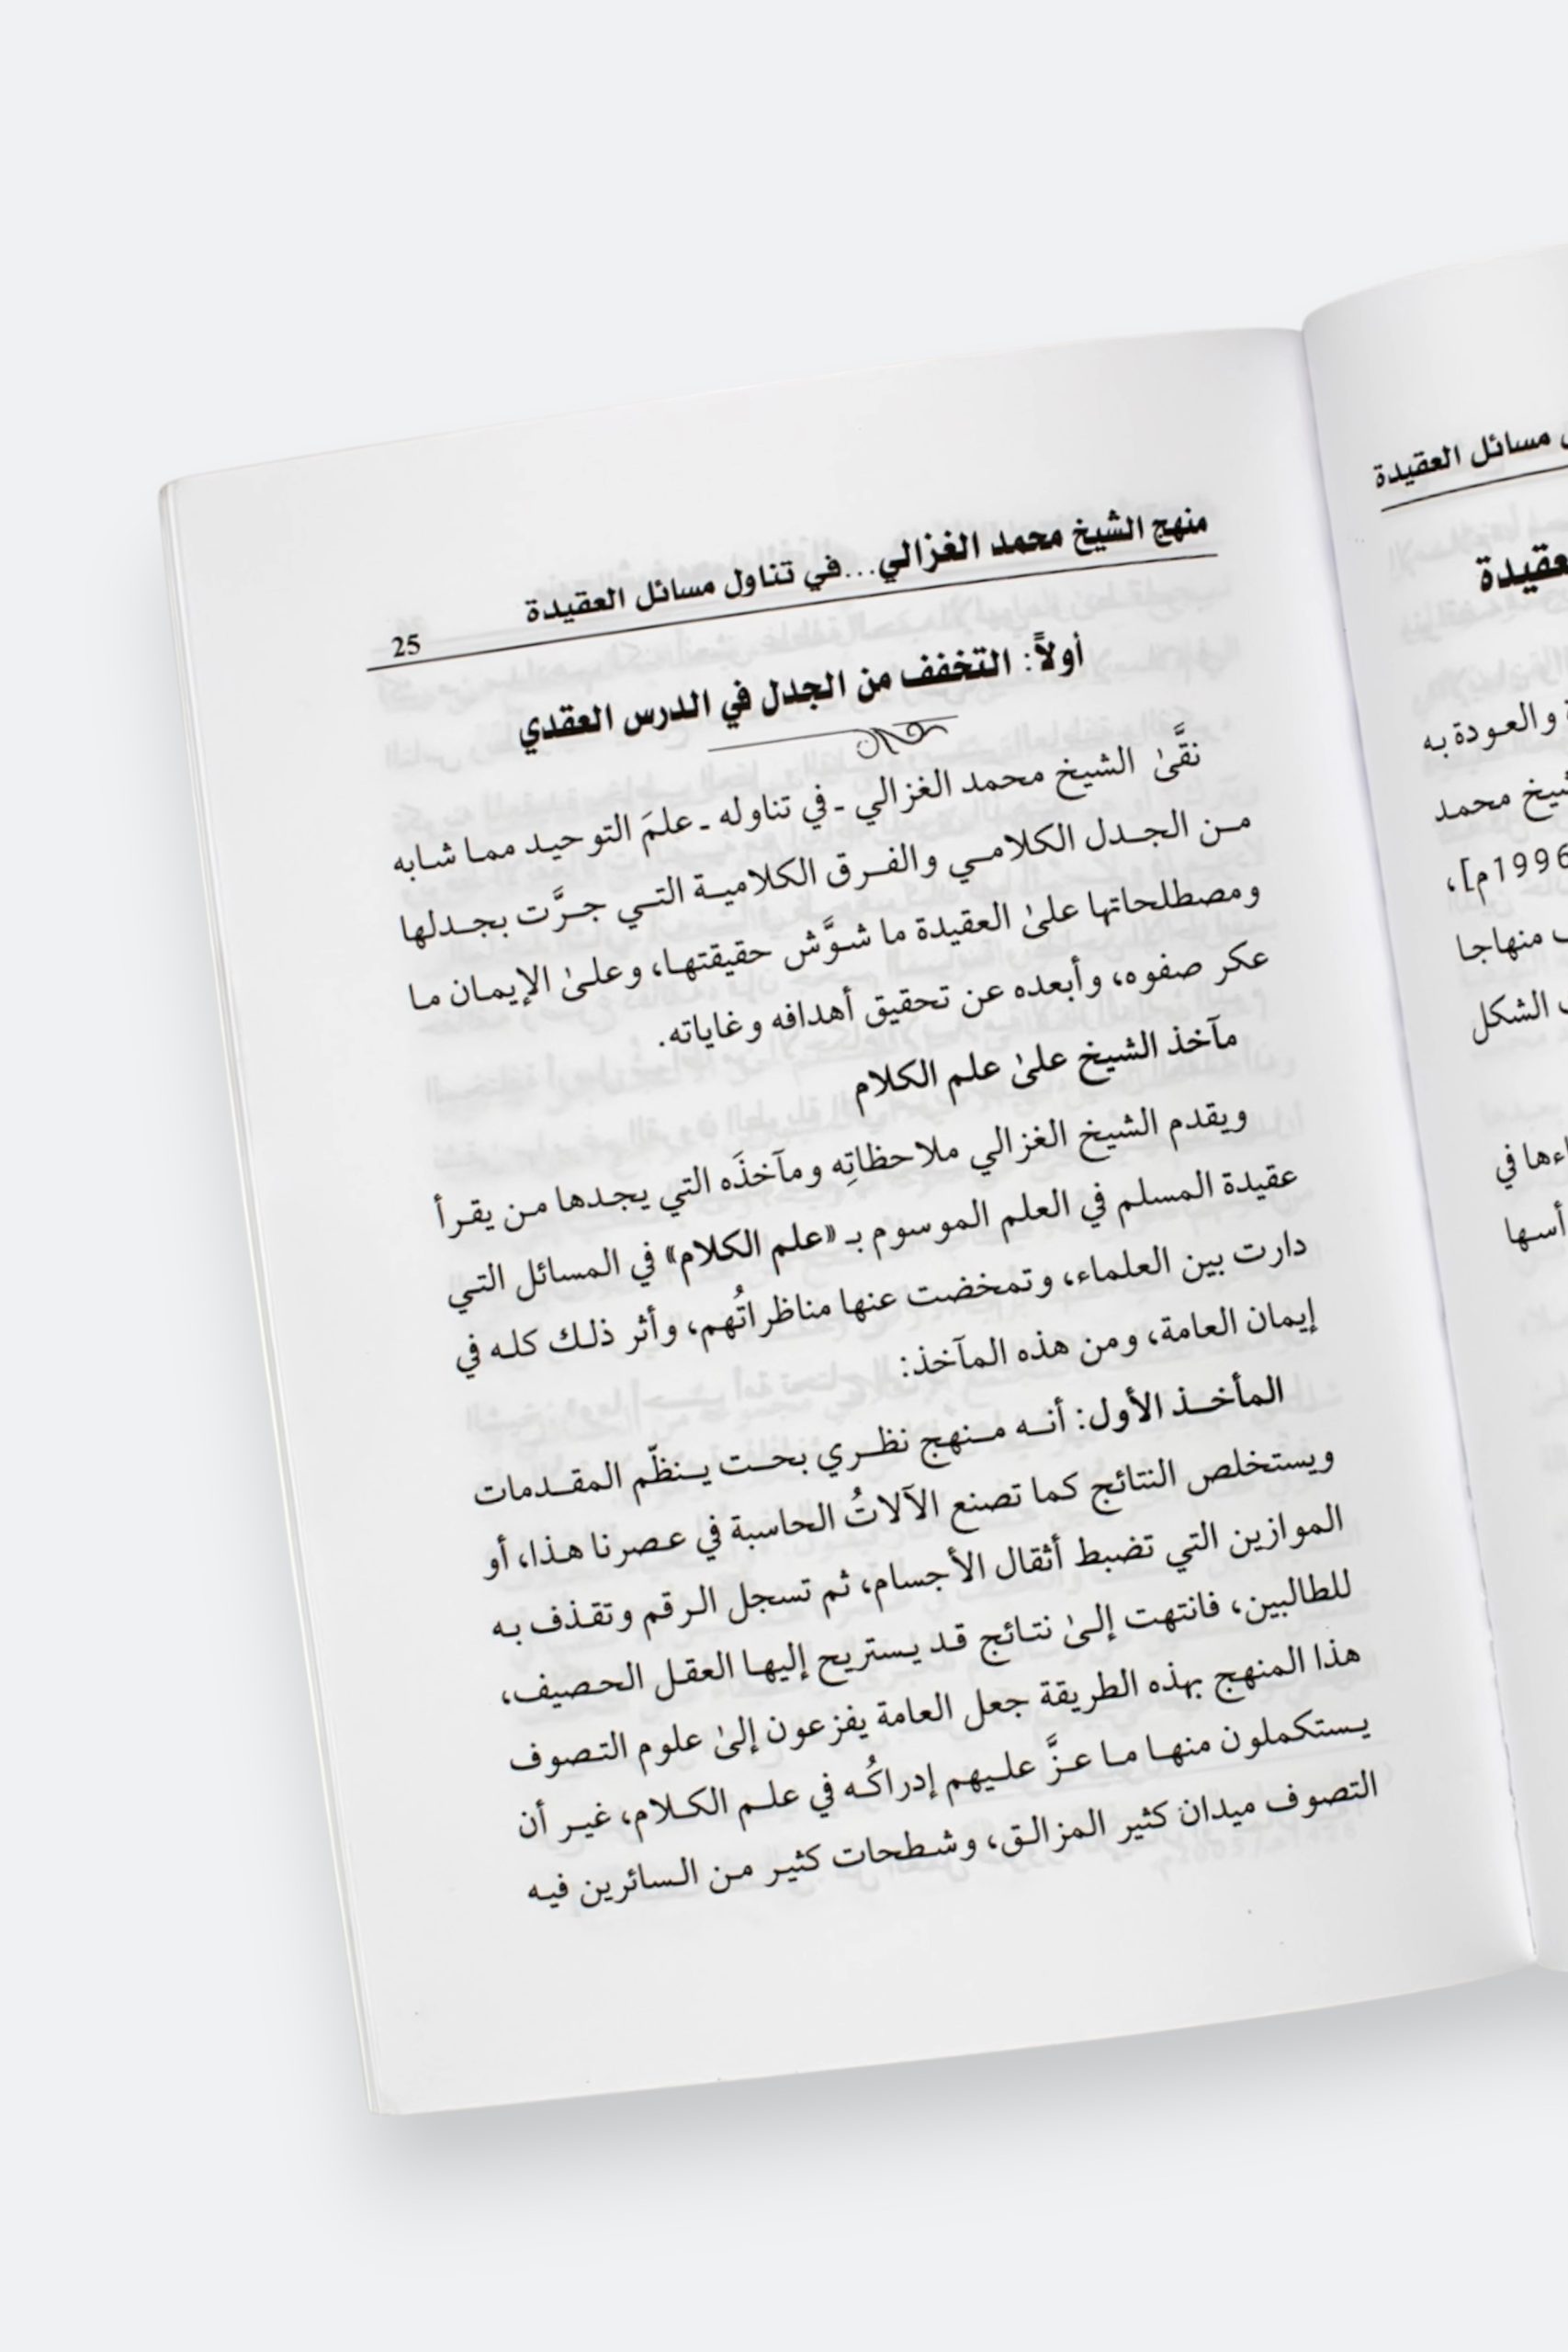 منهج الشيخ محمد الغزالي...في تناول مسائل العقيدة
25
أولاً: التخفف من الجدل في الدرس العقدي
نقَّىٰ الشيخ محمد الغزالي ـ في تناوله ـ علمَ التوحيد مما شابه
من الجدل الكلامي والفرق الكلامية التي جرَّت بجدلها
ومصطلحاتها علىٰ العقيدة ما شوَّش حقيقتها، وعلىٰ الإيمان ما
عكر صفوه، وأبعده عن تحقيق أهدافه وغاياته.
مآخذ الشيخ علىٰ علم الكلام
ويقدم الشيخ الغزالي ملاحظاتِه ومآخذَه التي يجدها من يقرأ
عقيدة المسلم في العلم الموسوم بـ «علم الكلام» في المسائل التي
دارت بين العلماء، وتمخضت عنها مناظراتُهم، وأثر ذلك كله في
إيمان العامة، ومن هذه المآخذ:
المأخذ الأول: أنه منهج نظري بحت ينظّم المقدمات
ويستخلص النتائج كما تصنع الآلاتُ الحاسبة في عصرنا هذا، أو
الموازين التي تضبط أثقال الأجسام، ثم تسجل الرقم وتقذف به
للطالبين، فانتهت إلىٰ نتائج قد يستريح إليها العقل الحصيف،
هذا المنهج بهذه الطريقة جعل العامة يفزعون إلىٰ علوم التصوف
يستكملون منها ما عزَّ عليهم إدراكُه في علم الكلام، غير أن
التصوف ميدان كثير المزالق، وشطحات كثير من السائرين فيه
مسائل العقيدة
والعودة به
محمد
1996م]،
منهاجا
الشكل